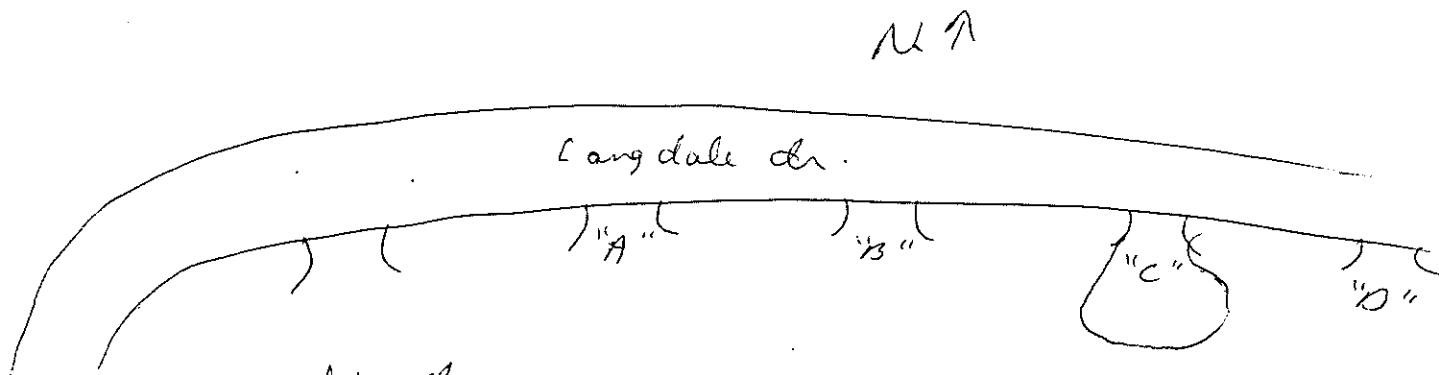 N ↑
Langdale dr.
"A" "B" "C" "D"